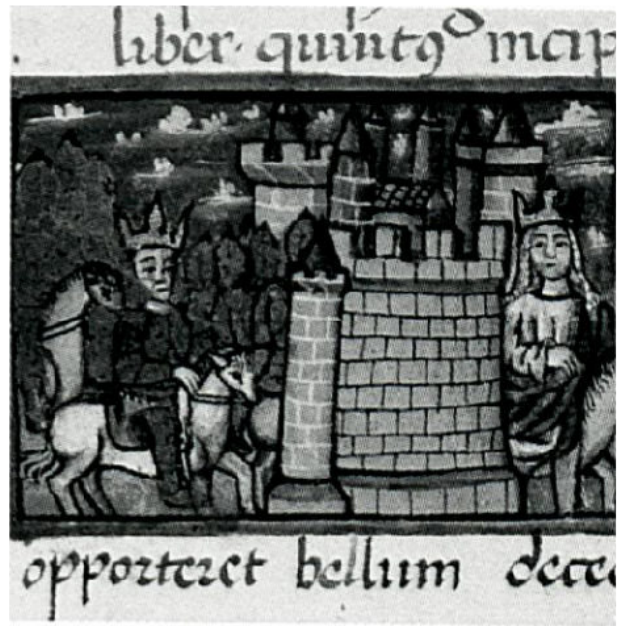 liber · quintꝰ incip
opporteret bellum dece